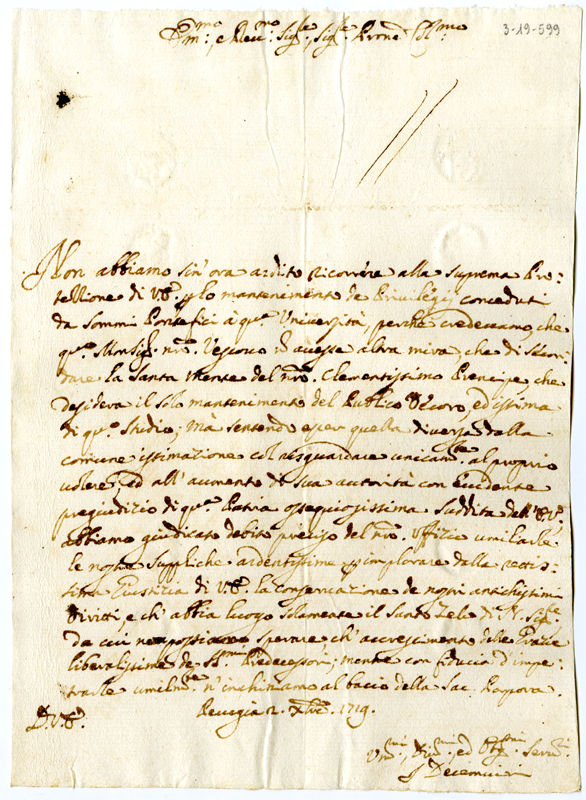 3-19-599
Em:mo, e Rev:mo Sig:re, Sig:re Prone Col:mo
Non abbiamo sin' ora ardito ricorrere alla suprema Pro=
tettione di V.E. p lo mantenimento de Privilegij conceduti
da Sommi Pontefici à qu.a Università, perche credevamo, che
qu.o Monsig.r nro. Vescovo non avesse altra mira, che di secon=
dare la Santa mente del nro. Clementissimo Prencipe, che
desidera il solo mantenimento del Publico decoro, ed istima
di qu.o Studio; mà sentendo esser quella diversa dalla
comune istimazione col risguardare unicam.te al proprio
volere, ed all' aumento di sua autorità con evidente
pregiudizio di qu.a Patria ossequiosissima suddita dell' E.V.
abbiamo giudicato debito preciso del nro. uffizio umiliarle
le nostre suppliche ardentissime p implorare dalla rettis=
sima Giustizia di V.E. la conservazione de nostri antichissimi
diritti, e ch' abbia luogo solamente il Santo Zelo di N. Sig.re
da cui possiamo sperare ch' accrescimento delle Grazie
liberalissime de S.mi Predecessori; mentre con fiducia d' impe=
trarle umilm.te n' inchiniamo al bacio della Sac. Porpora.
Perugia 2. Xbre. 1719.
D.V.E.
Um:mi, Div:mi, ed Obg:mi Serv:ri
I Decemviri